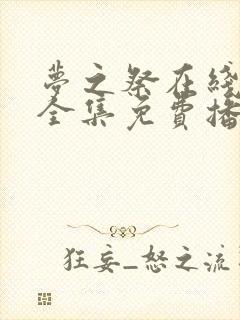 夢之祭在綫
全集免費播
狂妄_怒之流